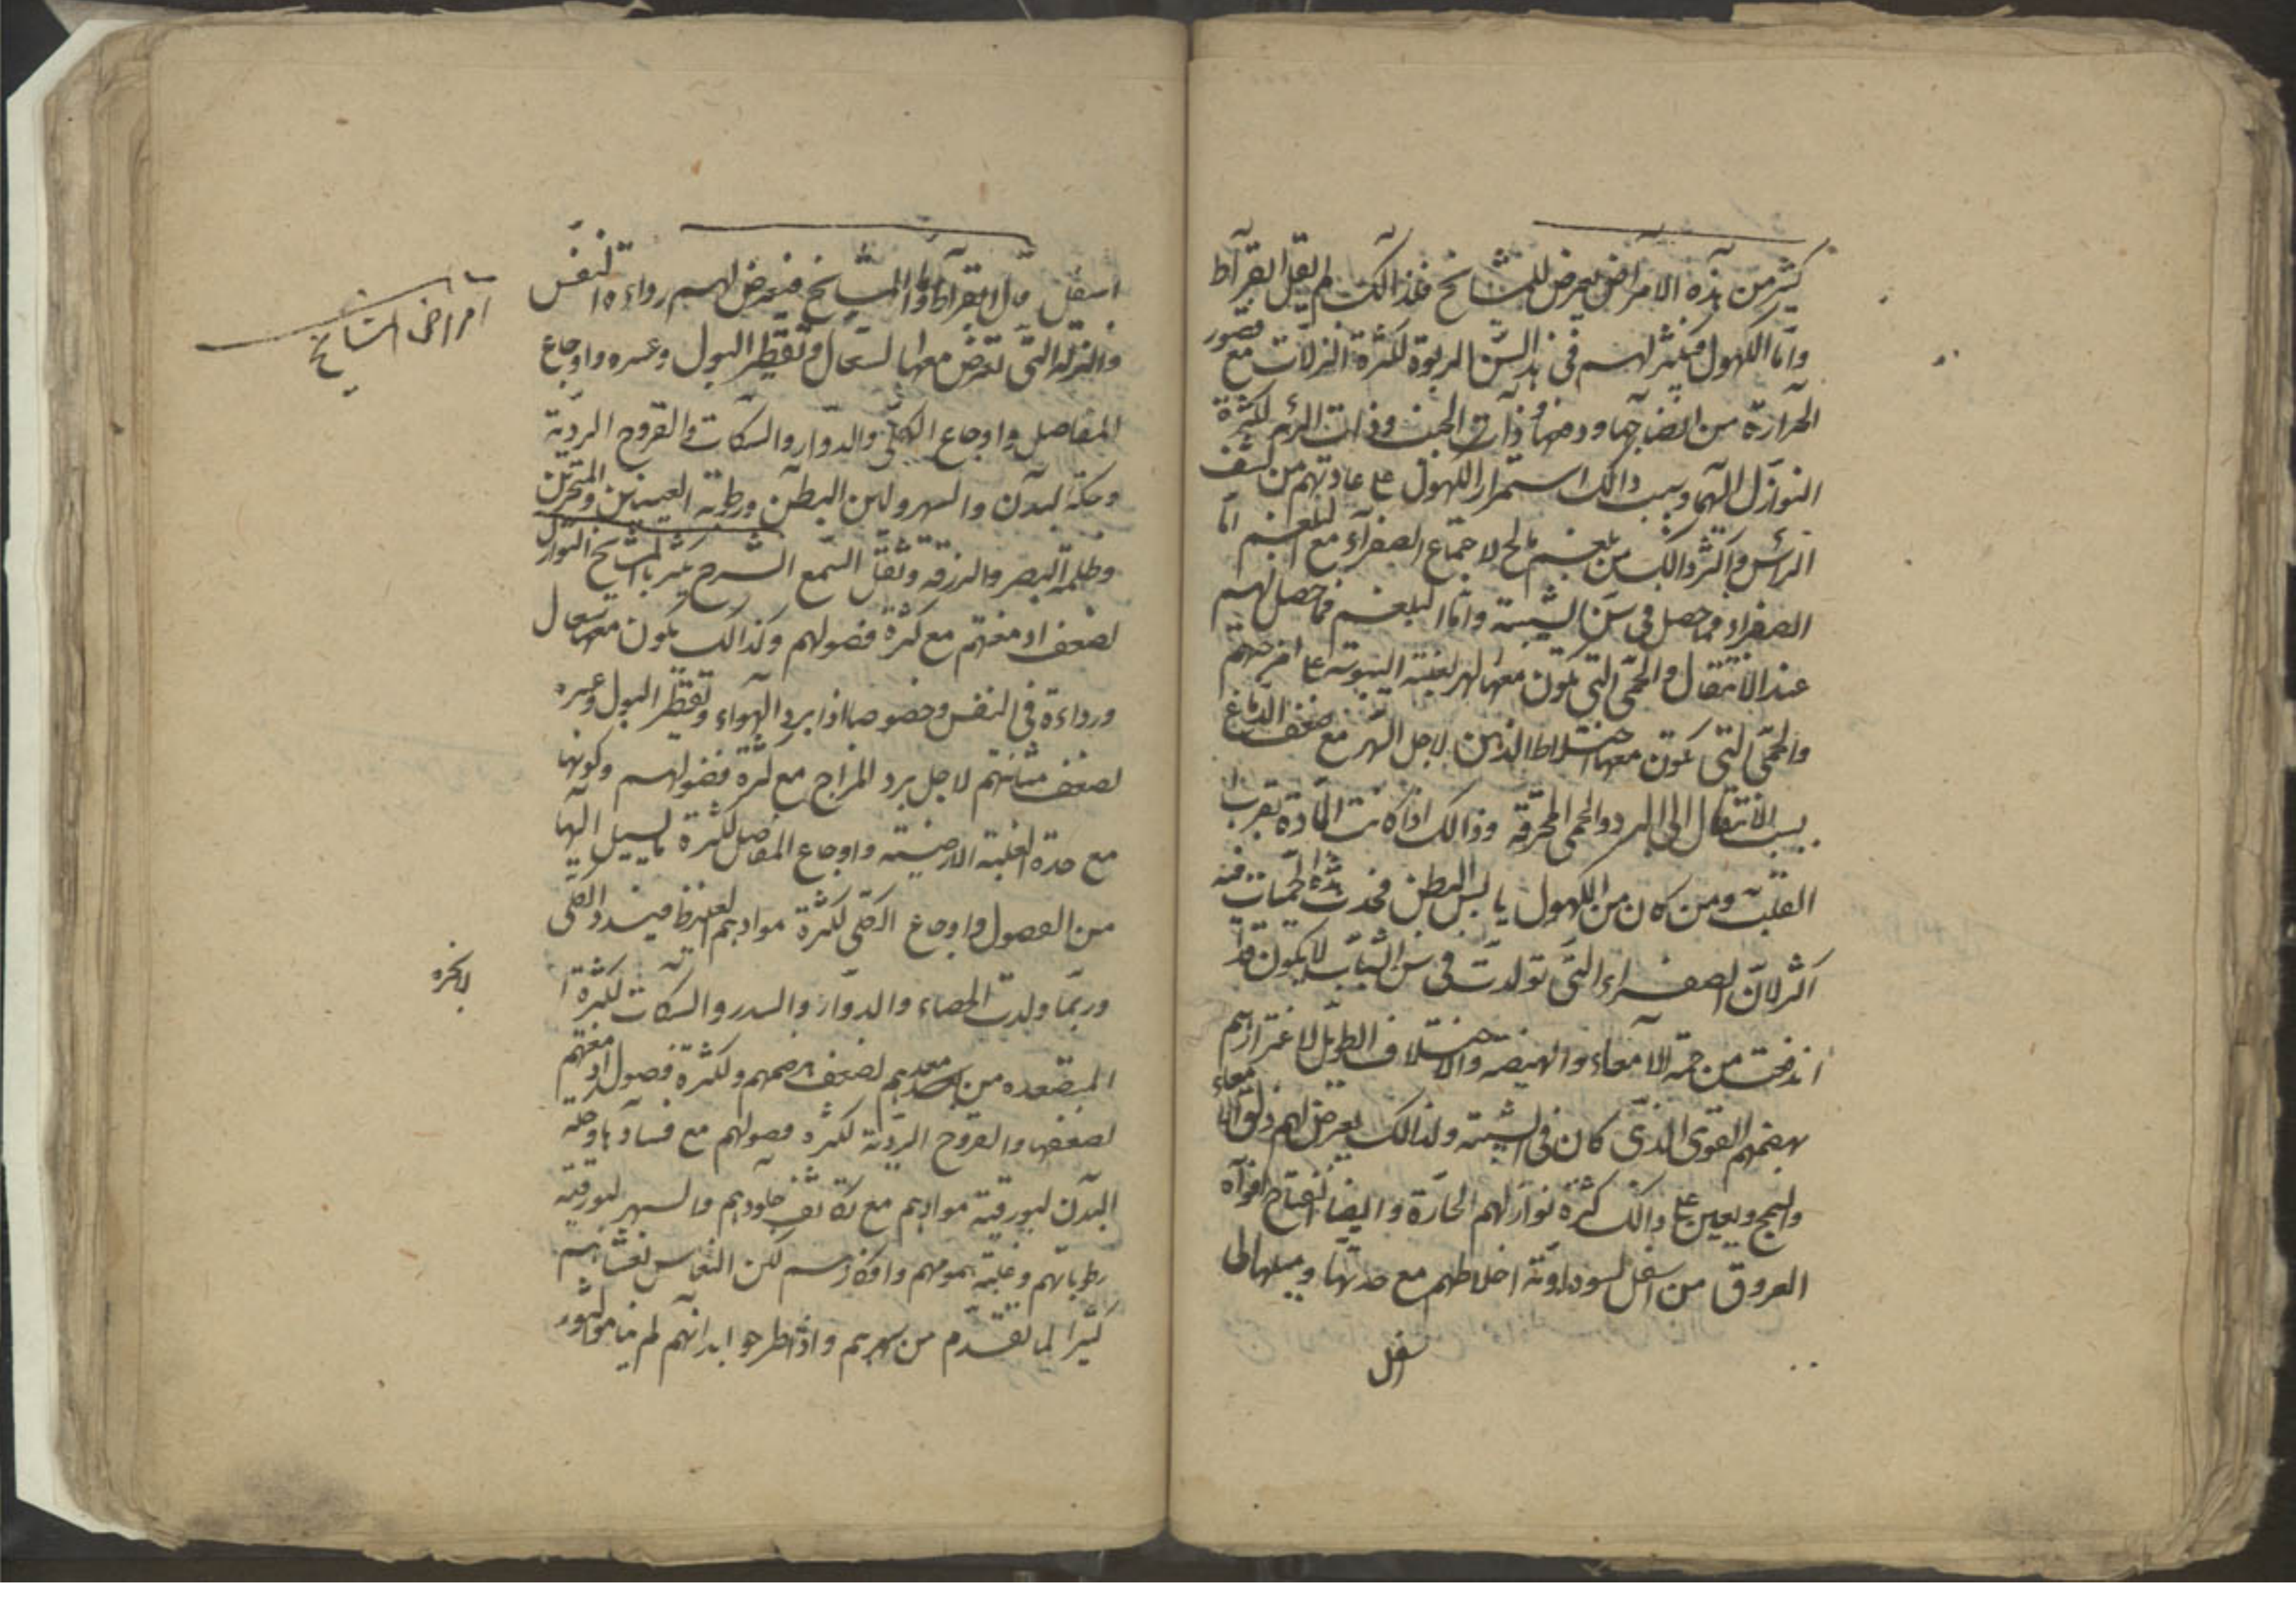 كثير من هذه الامراض يعرض للمشايخ فلذالك لم يقل ابقراط
واما الكهول فيكثر لهم فى هذا السن الربو لكثرة النزلات مع قصور
الحرارة من انضاجها ودفعها وذات الجنب وذات الرئة لكثرة
النوازل اليها وسبب ذالك استمرار الكهول على عادتهم من كشف
الرأس واكثر ذالك من بلغم مالح لاجتماع الصفراء مع البلغم اما
الصفراء فما حصل فى سن الشبيبة واما البلغم فما حصل لهم
عند الانتقال والحمى التى يكون معها السهر لغلبة اليبوسة على امزجتهم
والحمى التى تكون معها اختلاط الذهن لاجل السهر مع ضعف الدماغ
بسبب الانتقال الى البرد والحمى المحرقة وذالك اذا كانت المادة بقرب
القلب ومن كان من الكهول يابس البطن فحدث هذه الحميات فيه
اكثر لان الصفراء التى تولدت فى سن الشباب لا يكون قد
اندفعت من جهة الامعاء والهيضة والاختلاف الطويل لاغترارهم
بهضمهم القوى الذى كان فى الشبيبة ولذالك يعرض لهم زلق الامعاء
والسحج ويعين على ذالك كثرة نوازلهم الحارة وايضا انفتاح افواه
العروق من اسفل لسوداوية اخلاطهم مع حدتها وميلها الى
اسفل
اسفل قال ابقراط واما المشايخ فيعرض لهم رداءة النفس
والنزلة التى تعرض معها السعال وتقطير البول وعسره واوجاع
امراض المشايخ
المفاصل واوجاع الكلى والدوار والسكات والقروح الردية
وحكة البدن والسهر ولين البطن ورطوبة العينين والمنخرين
وظلمة البصر والزرقة وثقل السمع الشرح يكثر بالمشايخ النوازل
لضعف ادمغتهم مع كثرة فضولهم وكذالك يكون معها سعال
ورداءة فى النفس وخصوصا اذا برد الهواء وتقطير البول وعسره
لضعف مثانتهم لاجل برد المزاج مع كثرة فضولهم وكونها
مع حدة لغلبة الارضية واوجاع المفاصل لكثرة ما يسيل اليها
من الفضول واوجاع الكلى لكثرة موادهم لغلظ فينسد الكلى
وربما ولدت الحصاء والدوار والسدر والسكات لكثرة ا
لابخرة
المتصعدة من معدهم لضعف هضمهم ولكثرة فضول ادمغتهم
لضعفها والقروح الردية لكثرة فضولهم مع فسادها وحكة
البدن لبورقية موادهم مع تكاثف جلودهم والسهر لبورقية
رطوباتهم وغلبة همومهم وافكارهم لكن النعاس يغشاهم
كثيرا لما تقدم من سهرهم واذا طرحوا ابدانهم لم يناموا